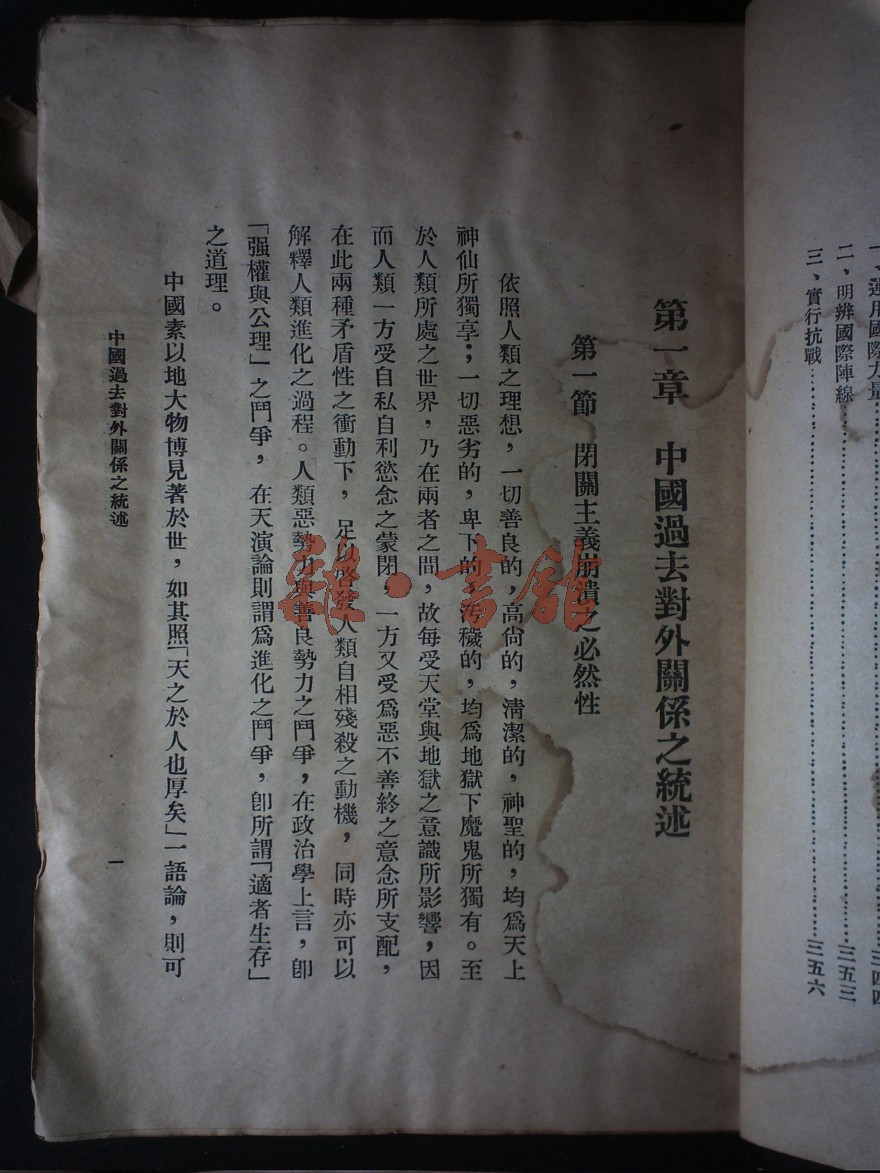 一、運用國際力量……三四四
二、明辨國際陣線……三五三
三、實行抗戰……三五六
第一章　中國過去對外關係之統述
第一節　閉關主義崩潰之必然性
依照人類之理想，一切善良的，高尙的，淸潔的，神聖的，均爲天上
神仙所獨享；一切惡劣的，卑下的，汚穢的，均爲地獄下魔鬼所獨有。至
於人類所處之世界，乃在兩者之間，故每受天堂與地獄之意識所影響，因
而人類一方受自私自利慾念之蒙閉，一方又受爲惡不善終之意念所支配，
在此兩種矛盾性之衝動下，足以啓發人類自相殘殺之動機，同時亦可以
解釋人類進化之過程。人類惡勢力與善良勢力之鬥爭，在政治學上言，卽
「强權與公理」之鬥爭，在天演論則謂爲進化之鬥爭，卽所謂「適者生存」
之道理。
中國素以地大物博見著於世，如其照「天之於人也厚矣」一語論，則可
中國過去對外關係之統述
一
雜·書館